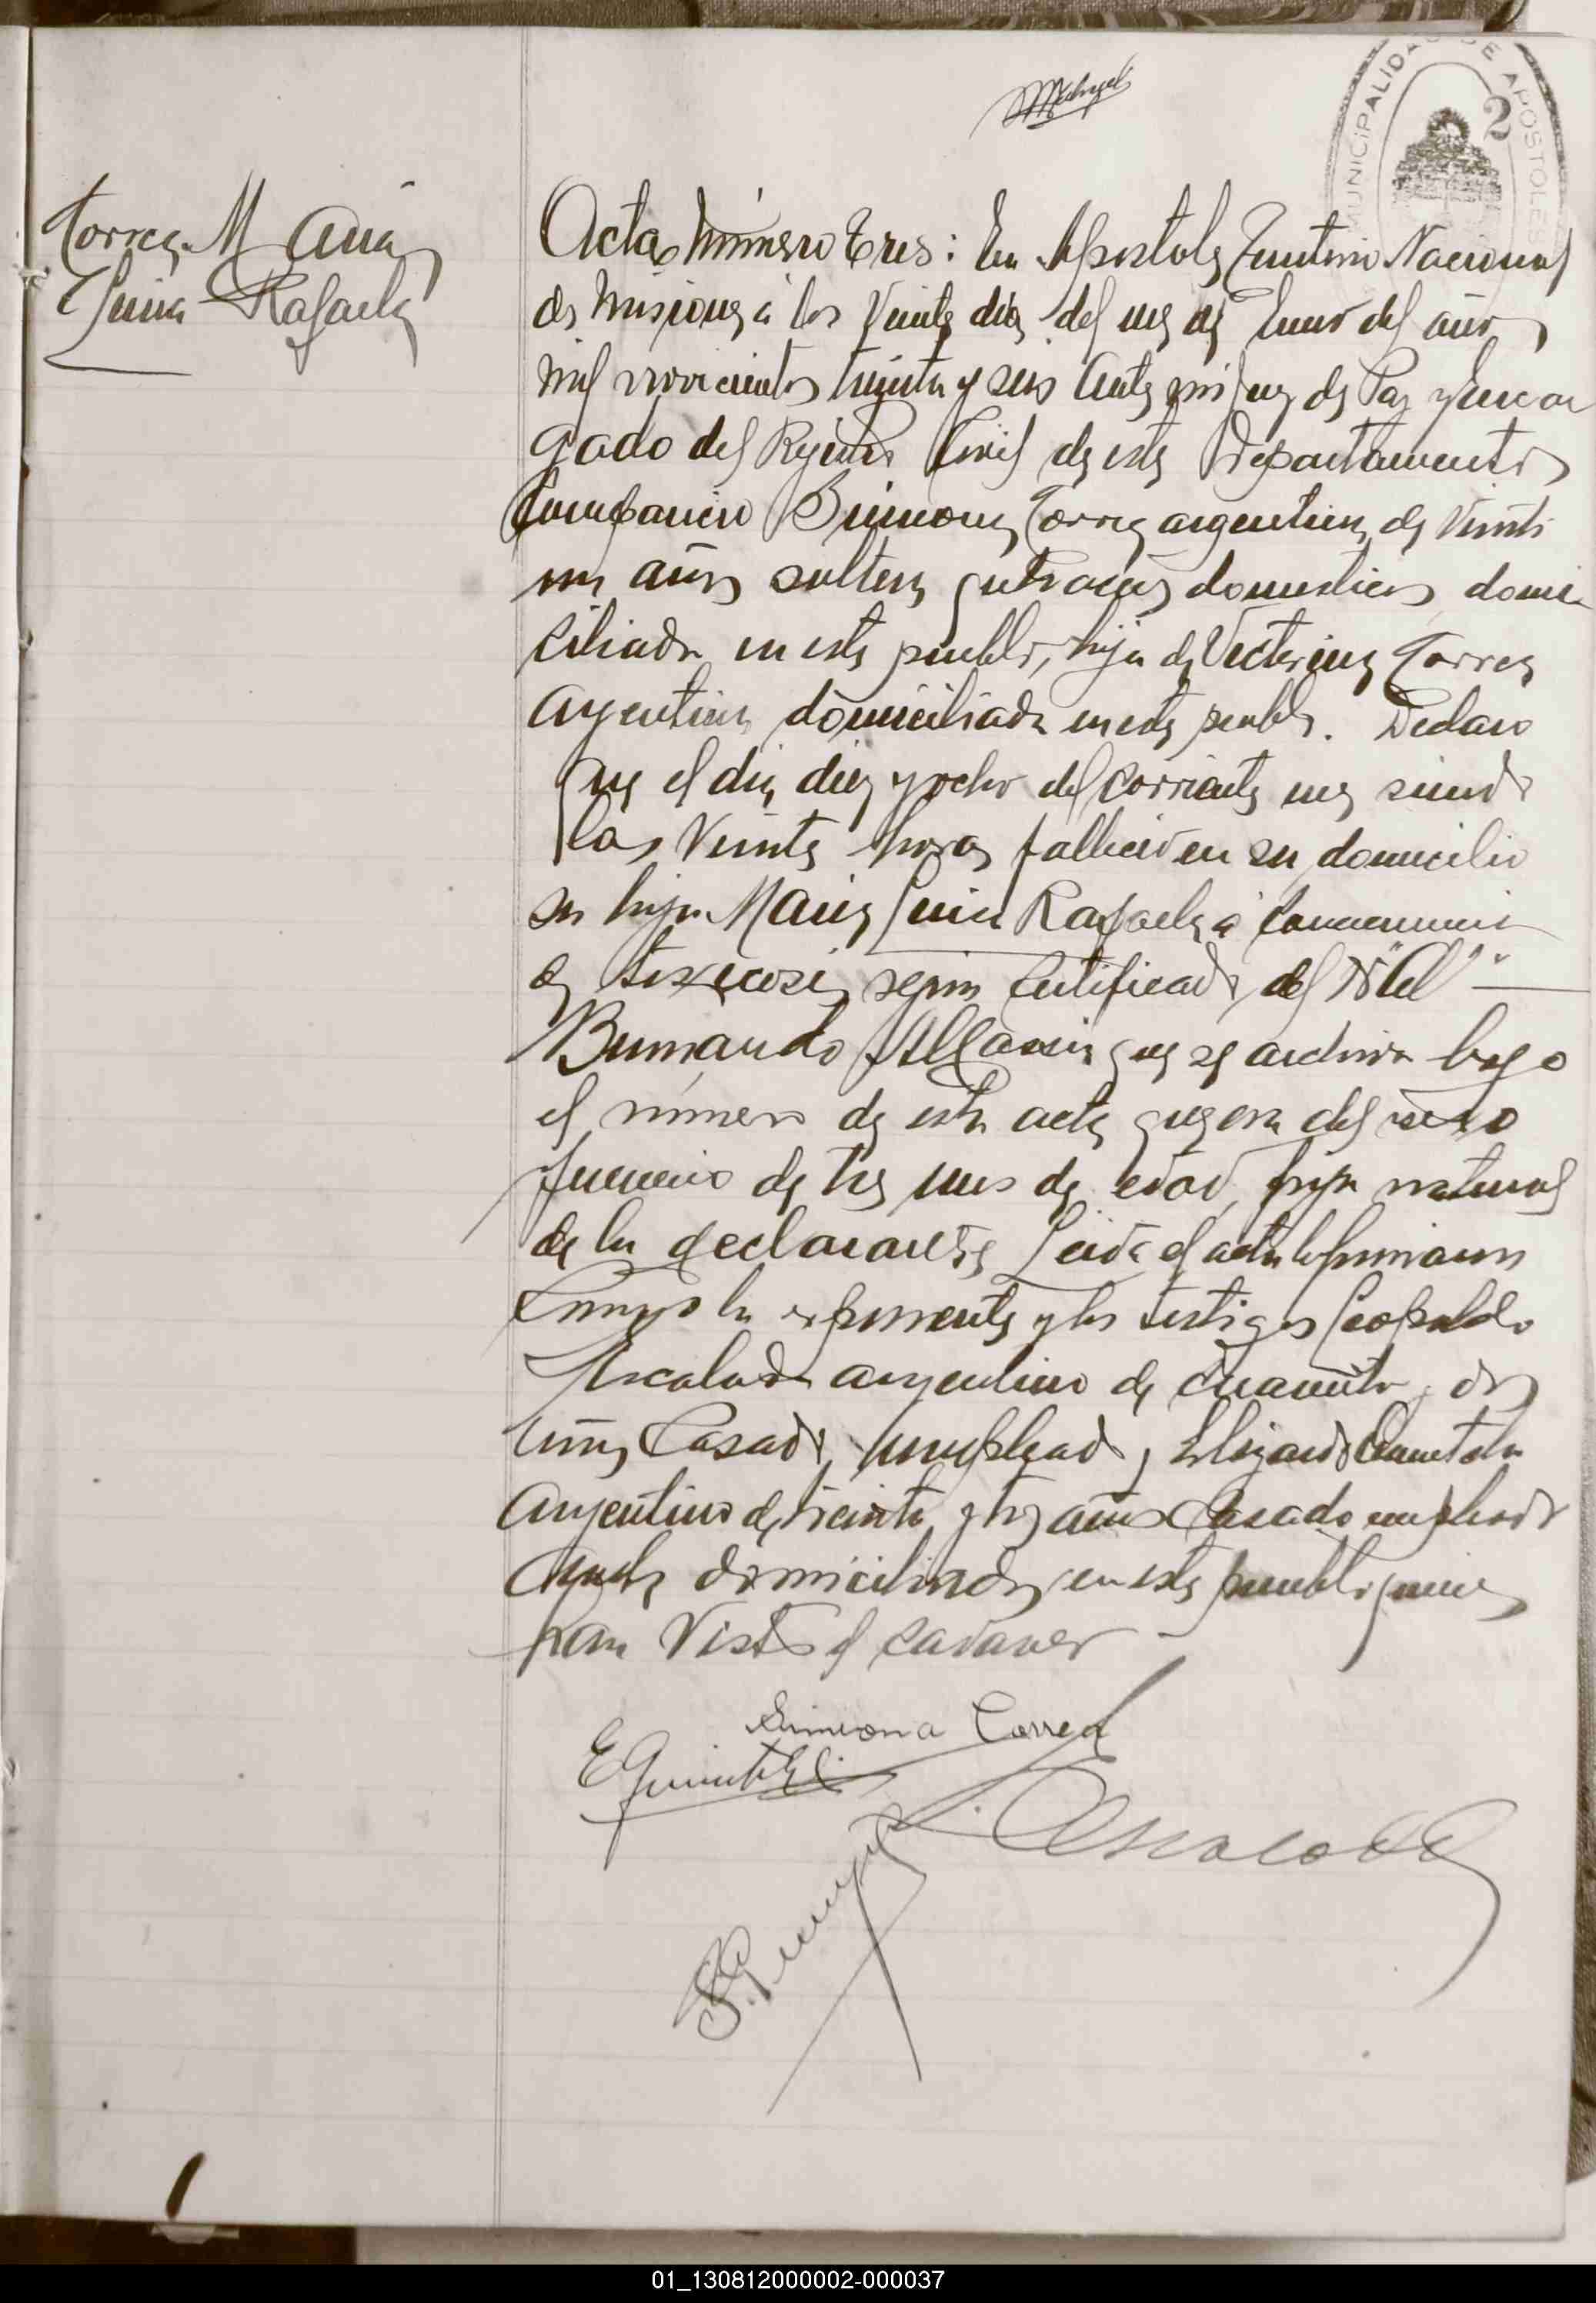 MUNICIPALIDAD DE APOSTOLES
2
Torres Maria
Luisa Rafaela
Acta Número Tres: En Apostoles Territorio Nacional
de Misiones á los Veinte dias del mes de Enero del año
mil novecientos treinta y seis Ante mi Juez de Paz y Encar
gado del Registro Civil de este Departamento
Comparecio Simeona Torres argentina de Veinti
un años soltera quehaceres domesticos domi
ciliada en este pueblo, hija de Victorina Torres
argentina domiciliada en este pueblo. Declaro
que el dia diez y ocho del corriente mes siendo
las Veinte horas fallecio en su domicilio
su hija Maria Luisa Rafaela á consecuencia
de toxicosis segun certificado del
Bernardo que se archiva bajo
el número de esta acta que era del sexo
femenino de tres meses de edad, hija natural
de la declarante Leida el acta la firmaron
conmigo la exponente y los testigos Leopoldo
Escalada argentino de cuarenta y dos
años Casado, empleado y Quintana
argentino de treinta y tres años Casado empleado
ambos domiciliados en este pueblo quienes
han Visto el cadaver
Simeona Torres